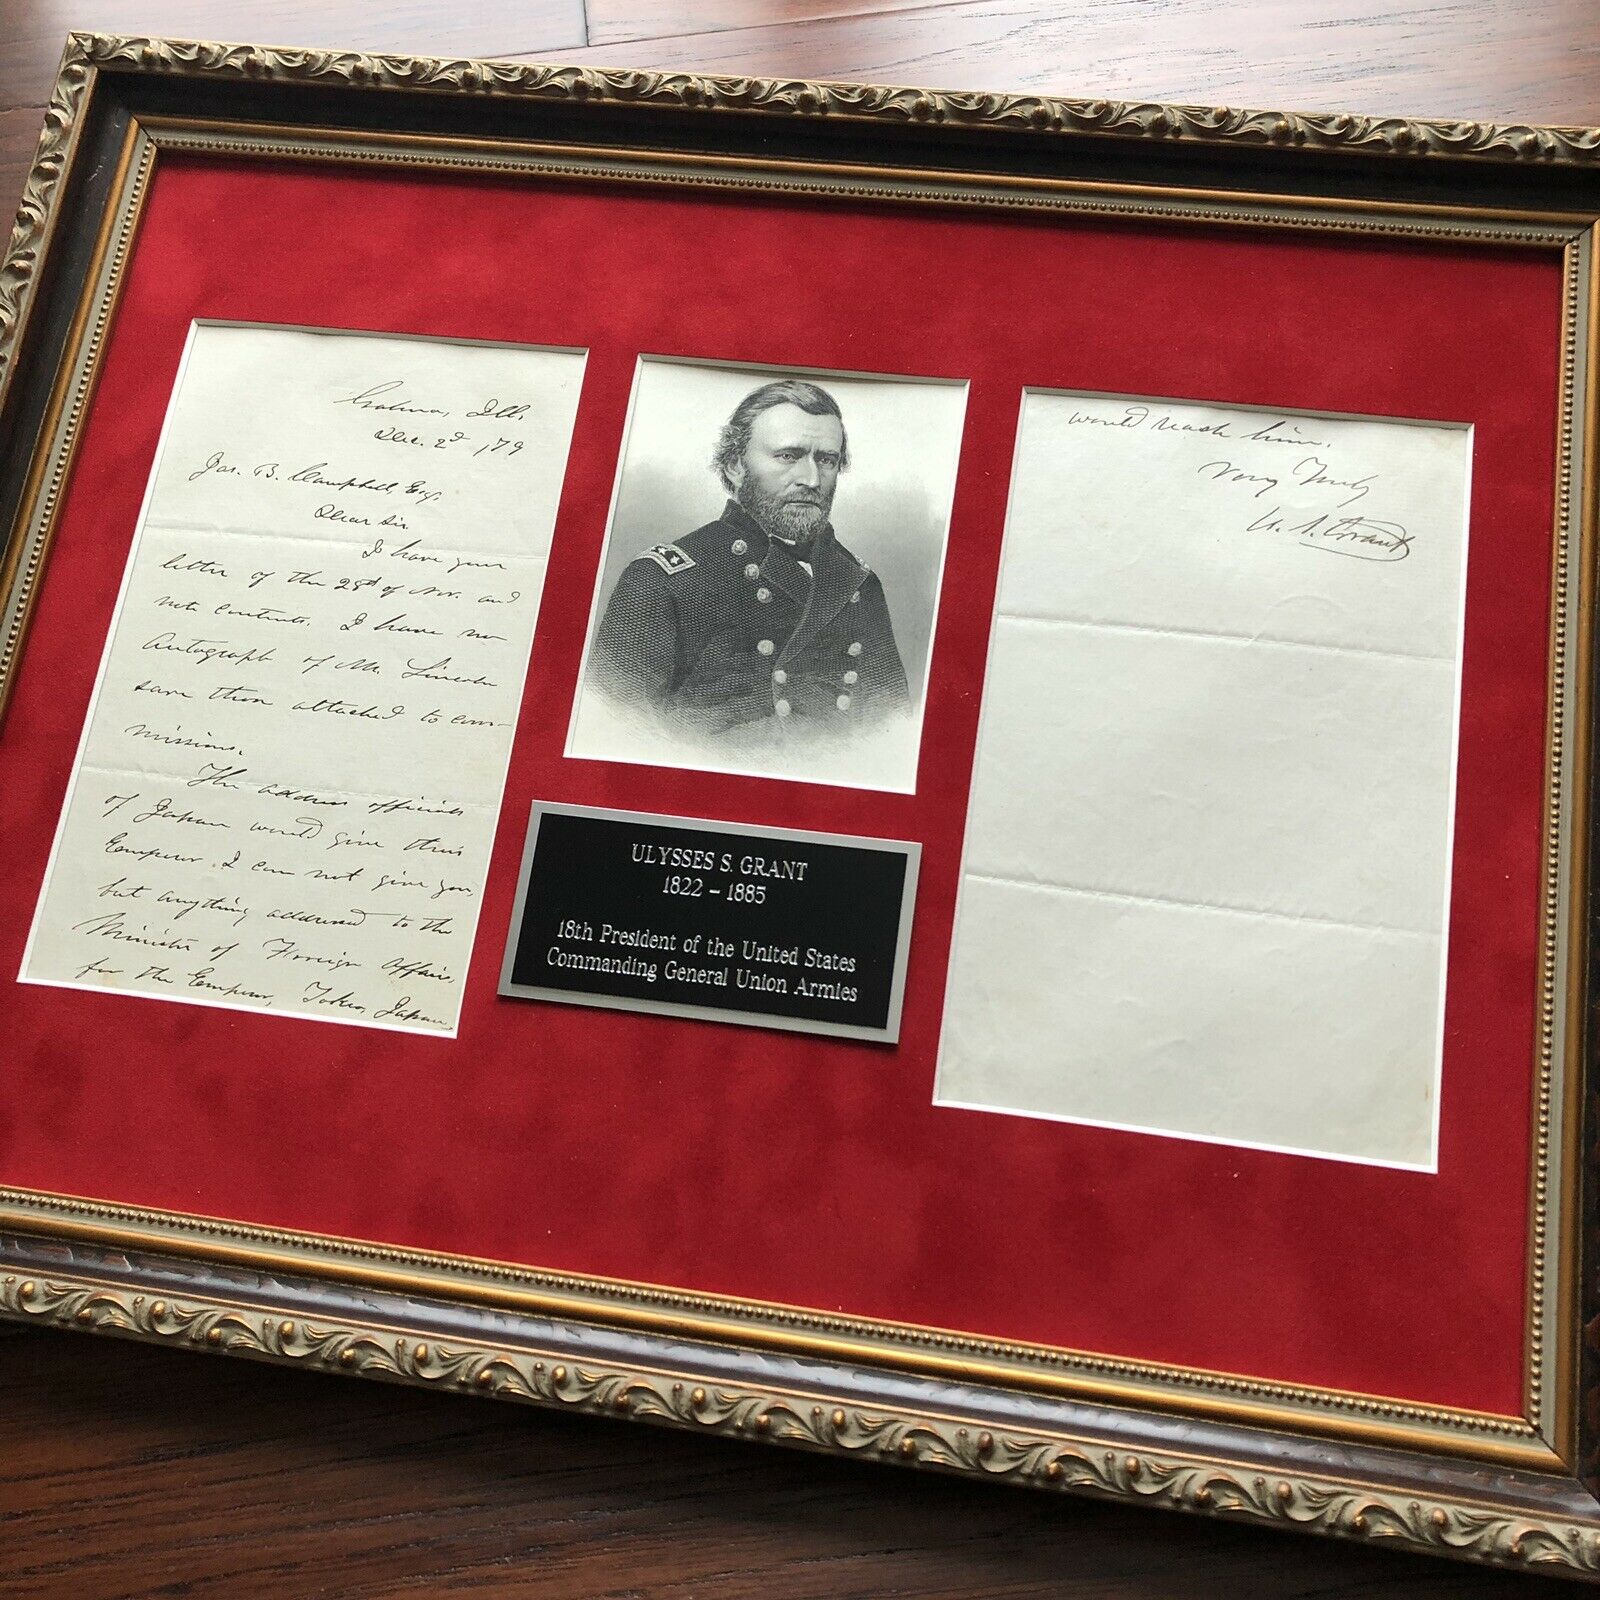 Galena, Ill.
Dec. 2d, /79
Jas. B. Campbell, Esq.
Dear Sir
I have your
letter of the 28th of Nov. and
note contents. I have no
Autograph of Mr. Lincoln
save those attached to com-
missions.
The address officials
of Japan would give their
Emperor I can not give you,
but anything addressed to the
Minister of Foreign Affairs,
for the Emperor, Tokio, Japan,
would reach him.
Very Truly
U. S. Grant
ULYSSES S. GRANT
1822 – 1885
18th President of the United States
Commanding General Union Armies